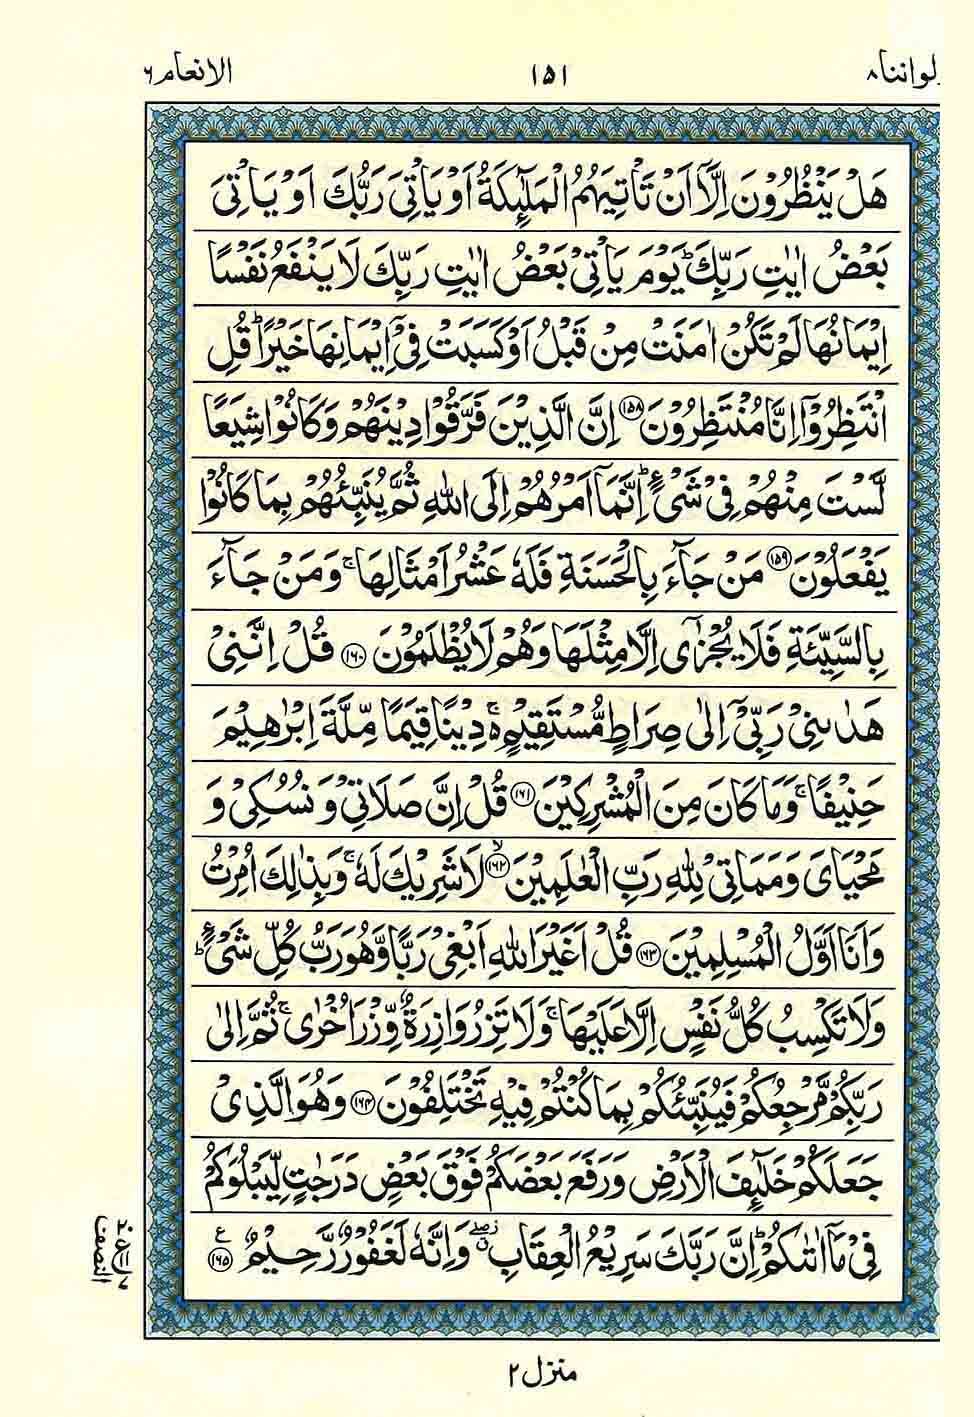 ولواننا ۸
۱۵۱
الانعام ۶
هَلْ يَنْظُرُوْنَ اِلَّاۤ اَنْ تَاْتِيَهُمُ الْمَلٰٓئِكَةُ اَوْ يَاْتِيَ رَبُّكَ اَوْ يَاْتِيَ
بَعْضُ اٰيٰتِ رَبِّكَ ؕ يَوْمَ يَاْتِيْ بَعْضُ اٰيٰتِ رَبِّكَ لَا يَنْفَعُ نَفْسًا
اِيْمَانُهَا لَمْ تَكُنْ اٰمَنَتْ مِنْ قَبْلُ اَوْ كَسَبَتْ فِيْۤ اِيْمَانِهَا خَيْرًا ؕ قُلِ
انْتَظِرُوْۤا اِنَّا مُنْتَظِرُوْنَ ۝۱۵۸ اِنَّ الَّذِيْنَ فَرَّقُوْا دِيْنَهُمْ وَكَانُوْا شِيَعًا
لَّسْتَ مِنْهُمْ فِيْ شَيْءٍ ؕ اِنَّمَاۤ اَمْرُهُمْ اِلَى اللّٰهِ ثُمَّ يُنَبِّئُهُمْ بِمَا كَانُوْا
يَفْعَلُوْنَ ۝۱۵۹ مَنْ جَآءَ بِالْحَسَنَةِ فَلَهٗ عَشْرُ اَمْثَالِهَا ۚ وَمَنْ جَآءَ
بِالسَّيِّئَةِ فَلَا يُجْزٰۤى اِلَّا مِثْلَهَا وَهُمْ لَا يُظْلَمُوْنَ ۝۱۶۰ قُلْ اِنَّنِيْ
هَدٰىنِيْ رَبِّيْۤ اِلٰى صِرَاطٍ مُّسْتَقِيْمٍ ۚ دِيْنًا قِيَمًا مِّلَّةَ اِبْرٰهِيْمَ
حَنِيْفًا ۚ وَمَا كَانَ مِنَ الْمُشْرِكِيْنَ ۝۱۶۱ قُلْ اِنَّ صَلَاتِيْ وَنُسُكِيْ وَ
مَحْيَايَ وَمَمَاتِيْ لِلّٰهِ رَبِّ الْعٰلَمِيْنَ ۝۱۶۲ۙ لَا شَرِيْكَ لَهٗ ۚ وَبِذٰلِكَ اُمِرْتُ
وَاَنَا اَوَّلُ الْمُسْلِمِيْنَ ۝۱۶۳ قُلْ اَغَيْرَ اللّٰهِ اَبْغِيْ رَبًّا وَّهُوَ رَبُّ كُلِّ شَيْءٍ ؕ
وَلَا تَكْسِبُ كُلُّ نَفْسٍ اِلَّا عَلَيْهَا ۚ وَلَا تَزِرُ وَازِرَةٌ وِّزْرَ اُخْرٰى ۚ ثُمَّ اِلٰى
رَبِّكُمْ مَّرْجِعُكُمْ فَيُنَبِّئُكُمْ بِمَا كُنْتُمْ فِيْهِ تَخْتَلِفُوْنَ ۝۱۶۴ وَهُوَ الَّذِيْ
جَعَلَكُمْ خَلٰٓئِفَ الْاَرْضِ وَرَفَعَ بَعْضَكُمْ فَوْقَ بَعْضٍ دَرَجٰتٍ لِّيَبْلُوَكُمْ
فِيْ مَاۤ اٰتٰىكُمْ ؕ اِنَّ رَبَّكَ سَرِيْعُ الْعِقَابِ ۖ وَاِنَّهٗ لَغَفُوْرٌ رَّحِيْمٌ ۝۱۶۵ ع
النصف
منزل ۲